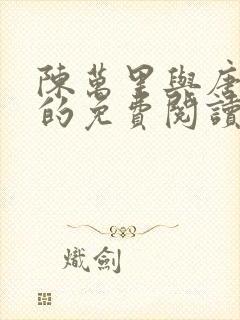 陳萬里與唐
的免費閱讀
熾劍